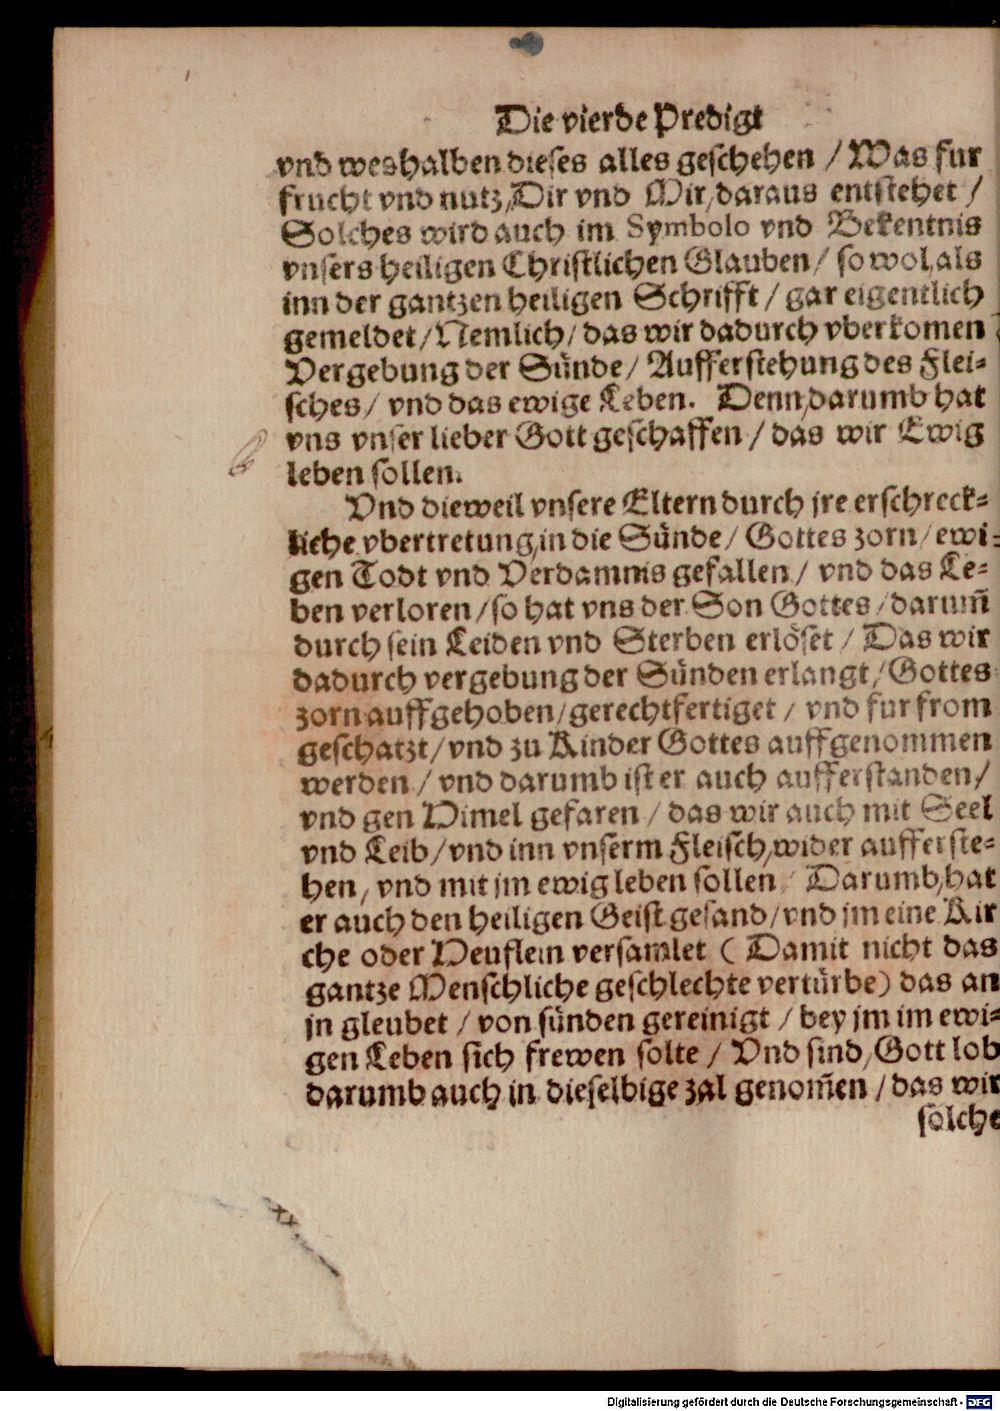 Die vierde Predigt
vnd weshalben dieses alles geschehen / Was fur
frucht vnd nutz / Dir vnd Mir / daraus entstehet /
Solches wird auch im Symbolo vnd Bekentnis
vnsers heiligen Christlichen Glauben / so wol als
inn der gantzen heiligen Schrifft / gar eigentlich
gemeldet / Nemlich / das wir dadurch vberkomen
Vergebung der Sünde / Aufferstehung des Flei⸗
sches / vnd das ewige Leben. Denn darumb hat
vns vnser lieber Gott geschaffen / das wir Ewig
leben sollen.
Vnd dieweil vnsere Eltern durch jre erschreck⸗
liche vbertretung in die Sünde / Gottes zorn / ewi⸗
gen Todt vnd Verdamnis gefallen / vnd das Le⸗
ben verloren / so hat vns der Son Gottes / darum̃
durch sein Leiden vnd Sterben erlöset / Das wir
dadurch vergebung der Sünden erlangt / Gottes
zorn auffgehoben / gerechtfertiget / vnd fur from
geschatzt / vnd zu Kinder Gottes auffgenommen
werden / vnd darumb ist er auch aufferstanden /
vnd gen Himel gefaren / das wir auch mit Seel
vnd Leib / vnd inn vnserm Fleisch / wider aufferste⸗
hen / vnd mit jm ewig leben sollen / Darumb hat
er auch den heiligen Geist gesand / vnd jm eine Kir
che oder Heuflein versamlet ( Damit nicht das
gantze Menschliche geschlechte vertürbe) das an
jn gleubet / von sünden gereinigt / bey jm im ewi⸗
gen Leben sich frewen solte / Vnd sind / Gott lob
darumb auch in dieselbige zal genom̃en / das wir
solche
Digitalisierung gefördert durch die Deutsche Forschungsgemeinschaft - DFG